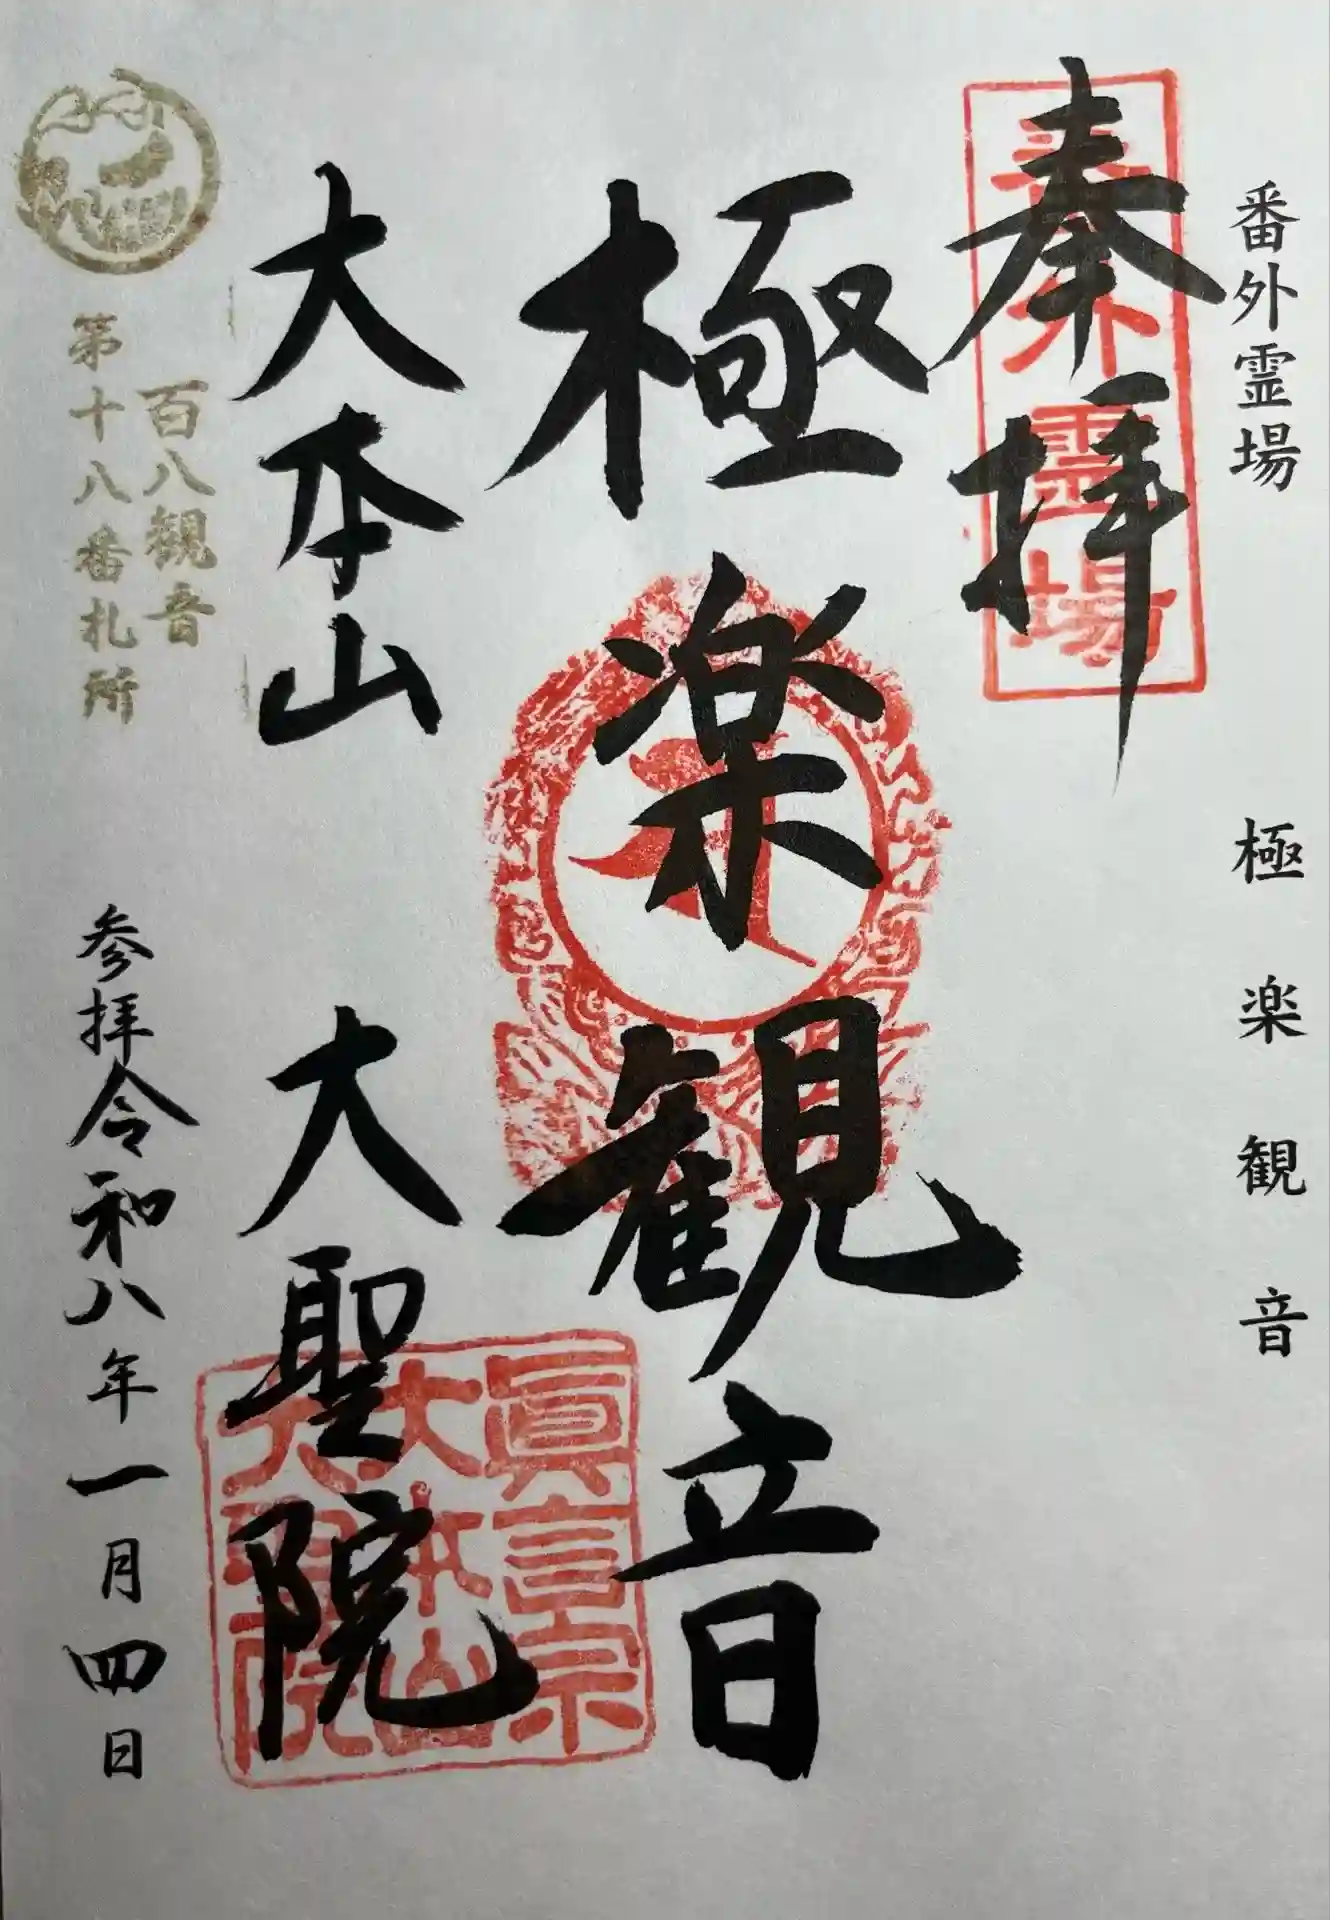 番外霊場 極楽観音
奉拝
番外霊場
極楽観音
大本山 大聖院
眞言宗
大本山
大聖院
百八観音
第十八番札所
参拝令和八年一月四日